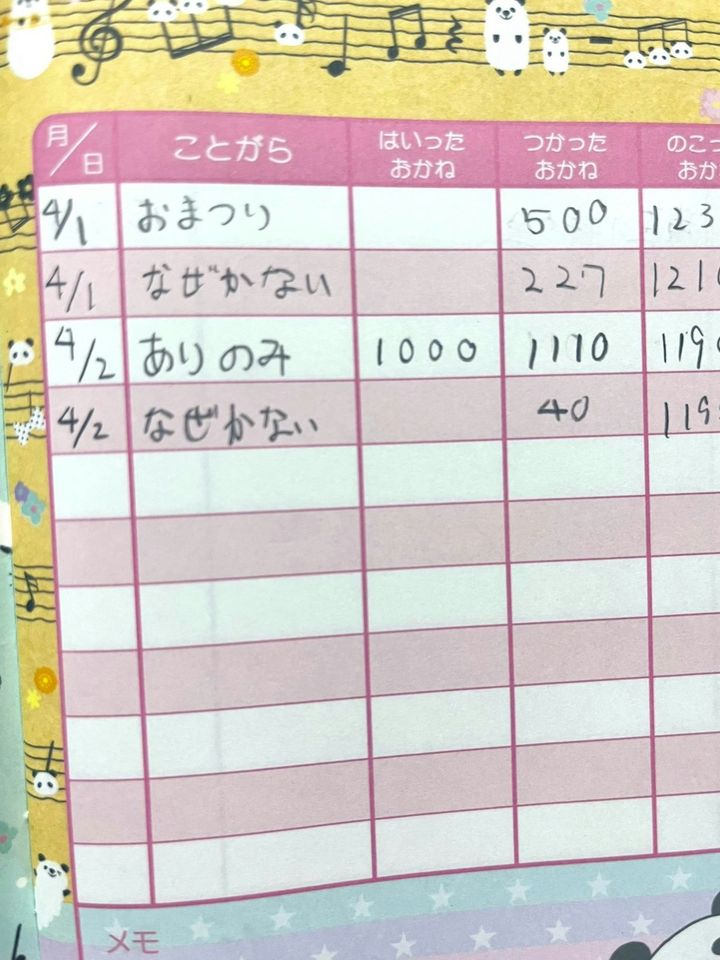 月/日 ことがら はいった おかね つかった おかね
4/1 おまつり 500
4/1 なぜかない 227
4/2 ありのみ 1000 1110
4/2 なぜかない 40
メモ